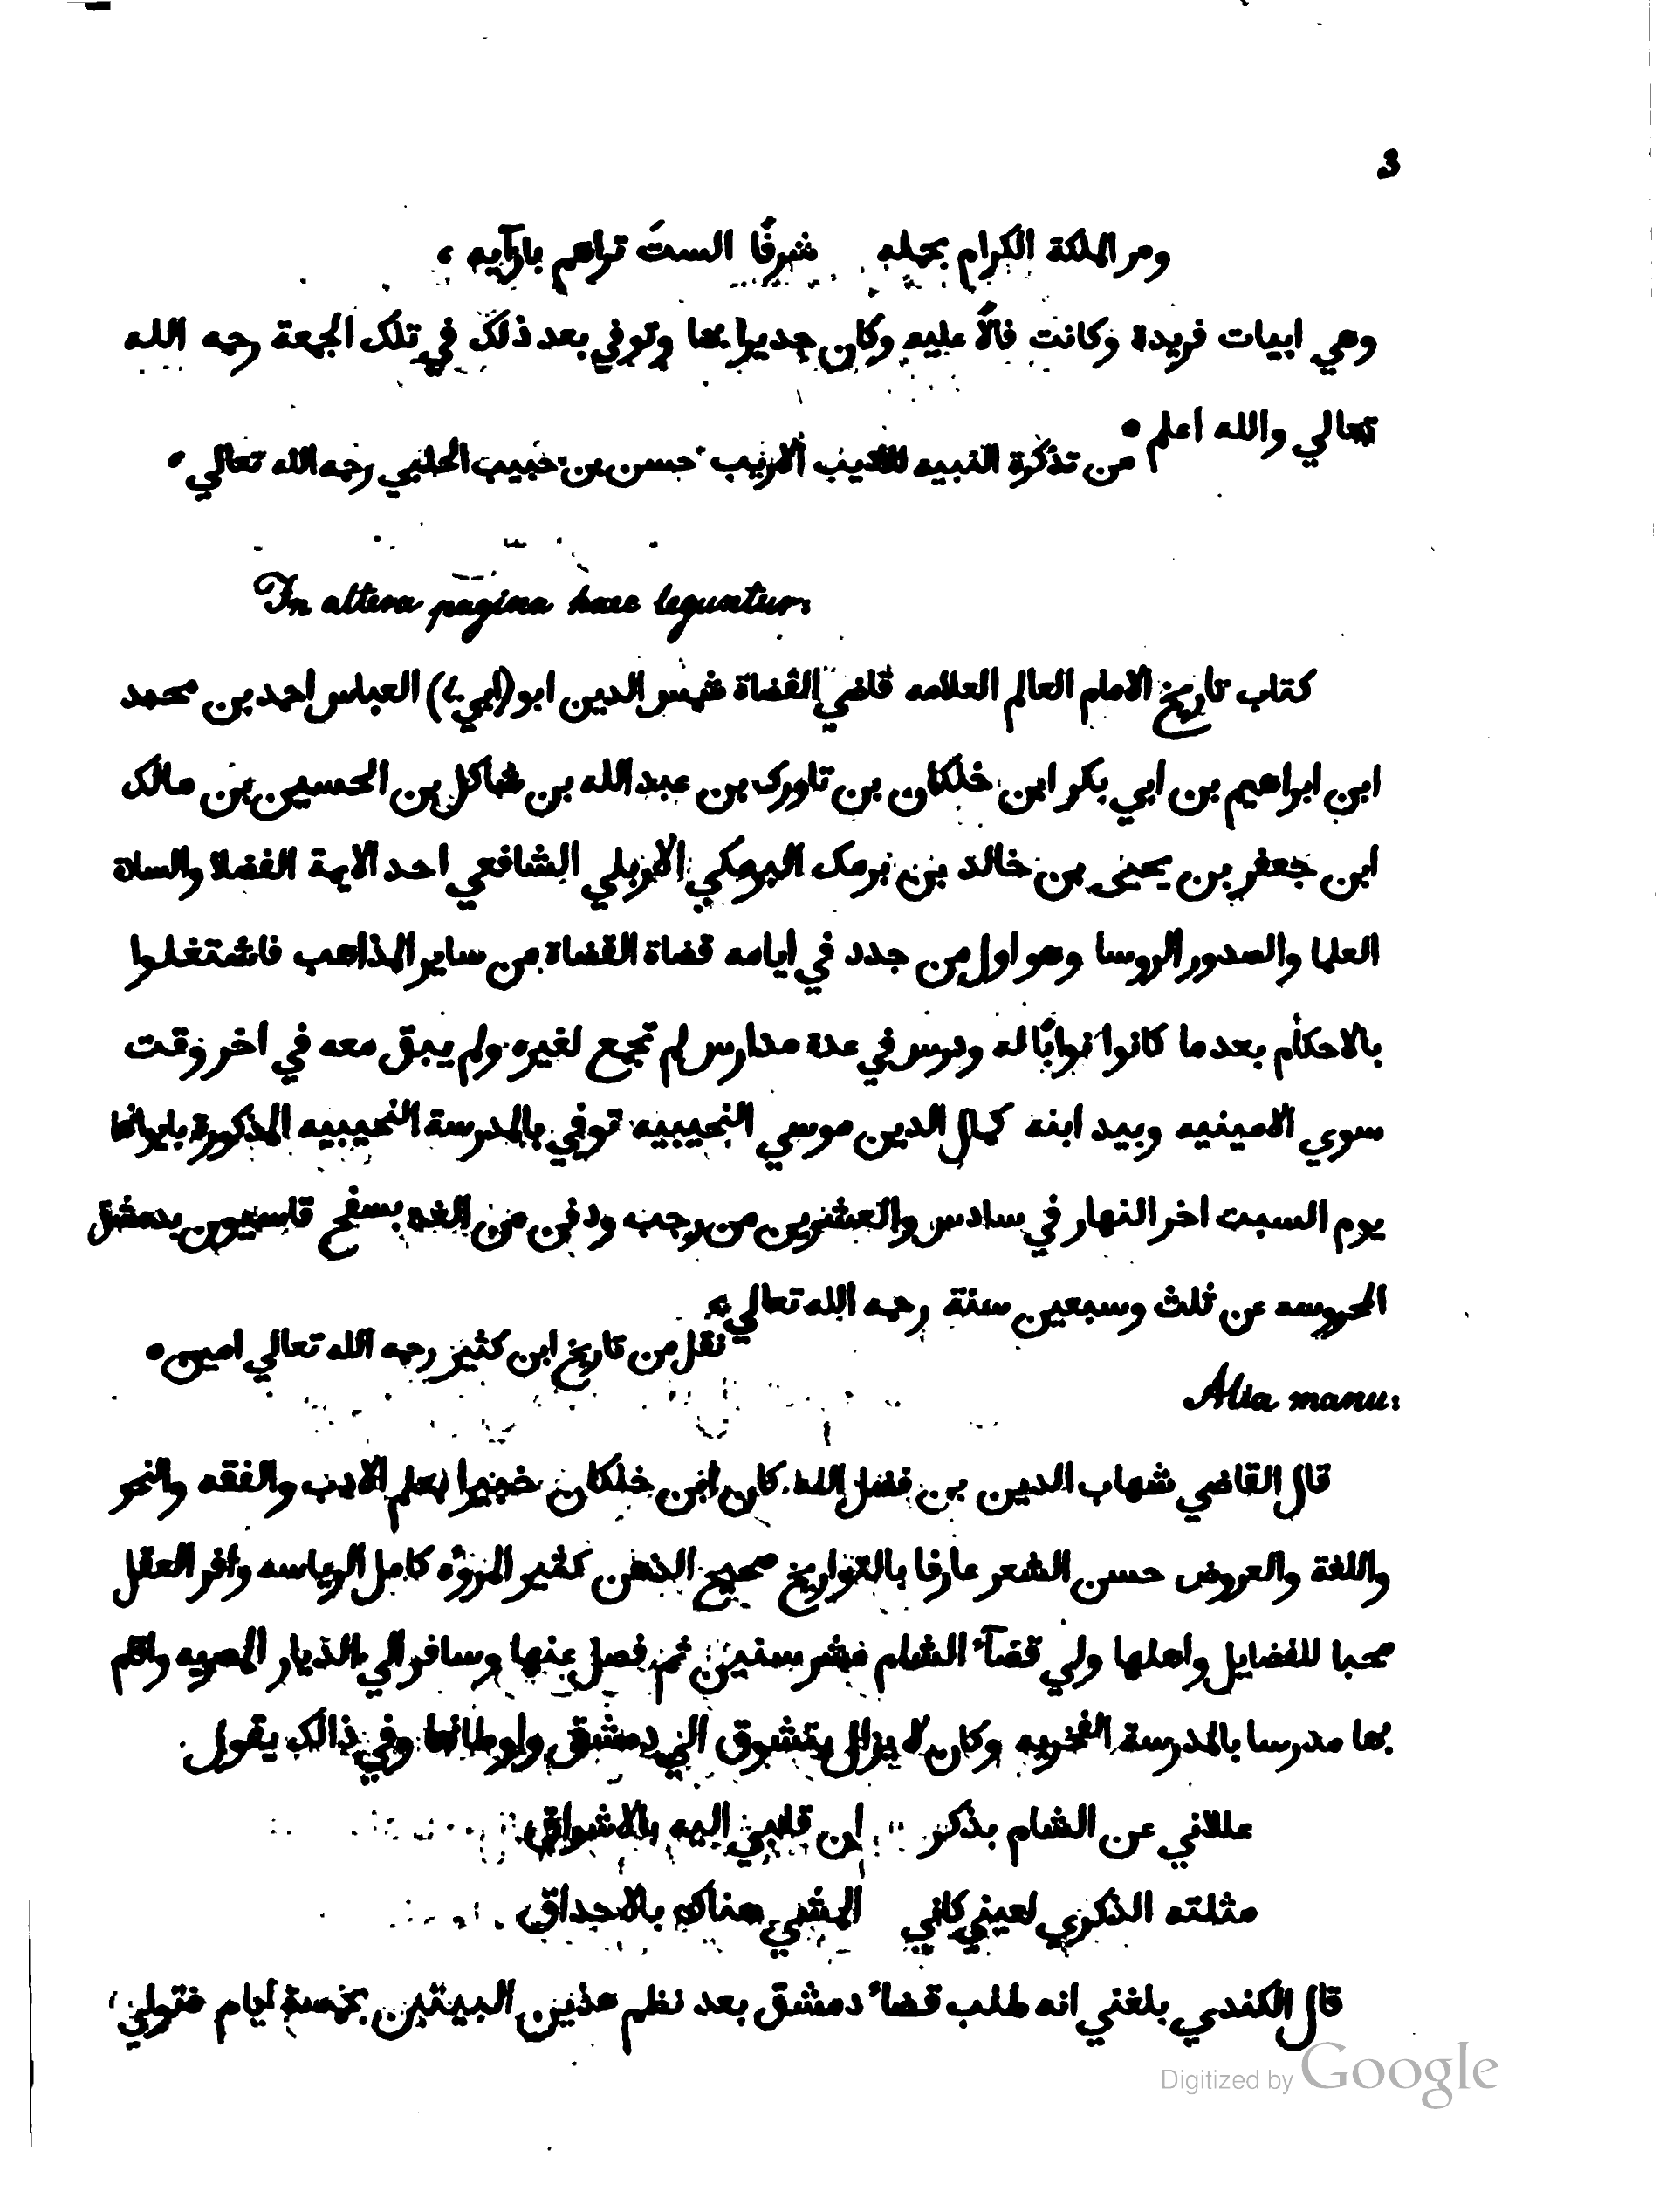 3
ومر الملكة الكرام بحمله شرفًا الستَ تراهم بازآيه ،
وهي ابيات فريدة وكانت فالًا عليه وكان جديرا بها وتوفي بعد ذلك في تلك الجمعة رحمه الله
تعالي والله اعلم ٥
من تذكرة النبيه للاديب الاريب حسن بن حبيب الحلبي رحمه الله تعالي ٥
In altera pagina haec leguntur:
كتاب تاريخ الامام العالم العلامه قاضي القضاة شمس الدين ابو (ابي .l) العباس احمد بن محمد
ابن ابراهيم بن ابي بكر ابن خلكان بن تاورك بن عبد الله بن شاكل بن الحسين بن مالك
ابن جعفر بن يحيى بن خالد بن برمك البرمكي الاربلي الشافعي احد الايمة الفضلا والسادة
العلما والصدور الروسا وهو اول من جدد في ايامه قضاة القضاة من ساير المذاهب فاشتغلوا
بالاحكام بعد ما كانوا نوابًا له ودرس في عدة مدارس لم تجمع لغيره ولم يبق معه في اخر وقت
سوي الامينيه وبيد ابنه كمال الدين موسي النجيبيه توفي بالمدرسة النجيبيه المذكورة بايوانها
يوم السبت اخر النهار في سادس والعشرين من رجب ودفن من الغد بسفح قاسيون بدمشق
المحروسه عن ثلث وسبعين سنة رحمه الله تعالي ،
نقل من تاريخ ابن كثير رحمه الله تعالي امين ٥
Alia manu:
قال القاضي شهاب الدين بن فضل الله كان ابن خلكان خبيرا بعلم الادب والفقه والنحو
واللغة والعروض حسن الشعر عارفا بالتواريخ صحيح الذهن كثير المروٌه كامل الرياسه وافر العقل
محبا للفضايل واهلها ولي قضآء الشام عشر سنين ثم فصل عنها وسافر الي الديار المصريه واقام
بها مدرسا بالمدرسة الفخريه وكان لا يزال يتشوق الي دمشق واوطانها وفي ذالك يقول
عللاني عن الشام بذكر ان قلبي اليه بالاشواق
مثلته الذكري لعيني كاني المشي هناك بالاحداق
قال الكندي بلغني انه طلب قضاء دمشق بعد نظم هذين البيتين بخمسة ايام فتولي ،
Digitized by Google